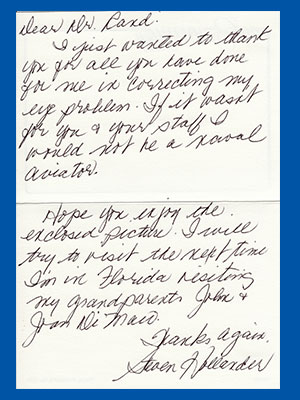 Dear Dr. Rand.
I just wanted to thank
you for all you have done
for me in correcting my
eye problem. If it wasn't
for you & your staff I
would not be a naval
aviator.
Hope you enjoy the
enclosed picture. I will
try to visit the next time
I'm in Florida visiting
my grandparents John &
Joan Di Maio.
Thanks again.
Steven Hollander